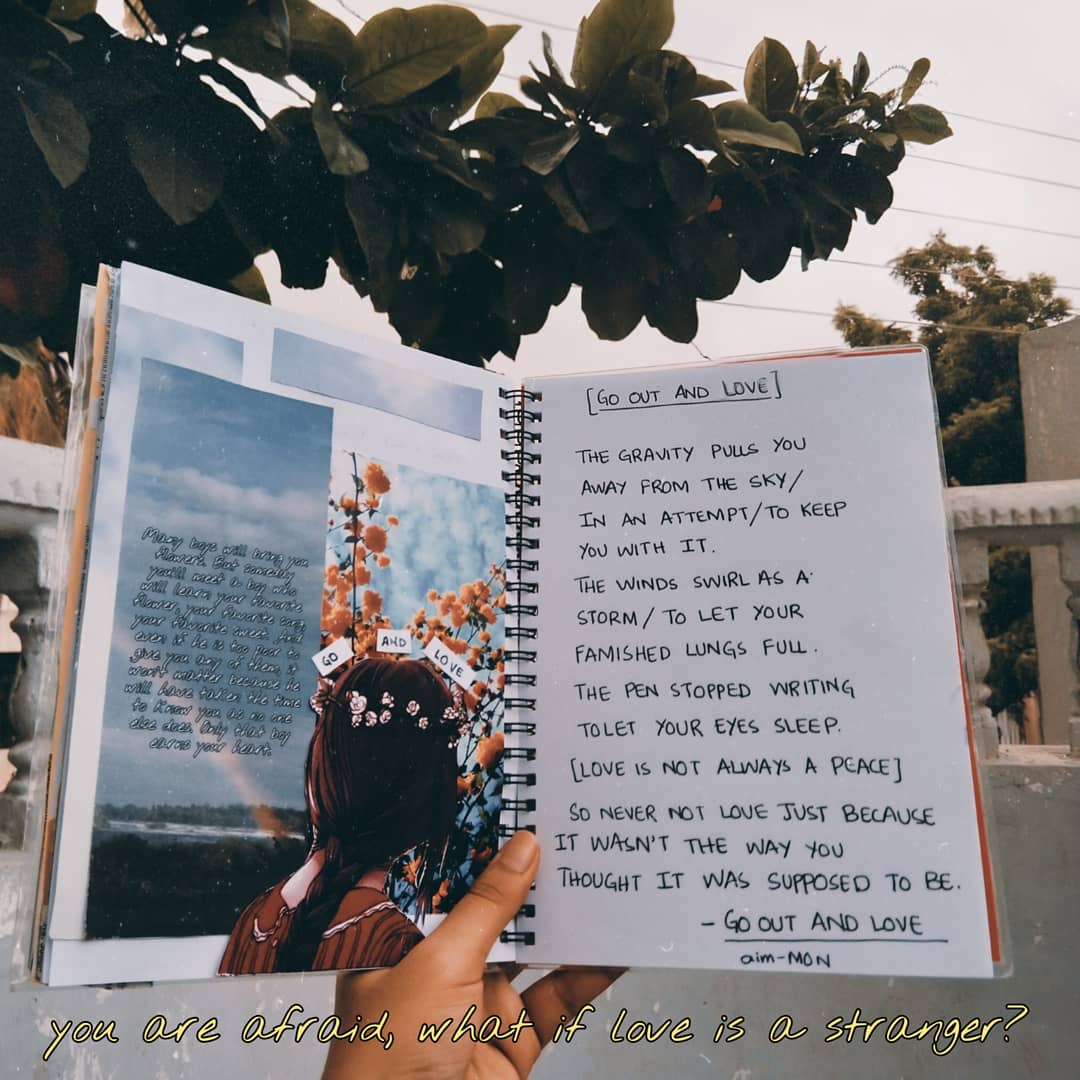 Many boys will bring you
flowers. But someday
you'll meet a boy who
will learn your favorite
flower, your favorite song,
your favorite sweet. And
even if he is too poor to
give you any of them, it
won't matter because he
will have taken the time
to know you as no one
else does. Only that boy
earns your heart.
GO AND LOVE
[GO OUT AND LOVE]
THE GRAVITY PULLS YOU
AWAY FROM THE SKY/
IN AN ATTEMPT/TO KEEP
YOU WITH IT.
THE WINDS SWIRL AS A
STORM/ TO LET YOUR
FAMISHED LUNGS FULL.
THE PEN STOPPED WRITING
TO LET YOUR EYES SLEEP.
[LOVE IS NOT ALWAYS A PEACE]
SO NEVER NOT LOVE JUST BECAUSE
IT WASN'T THE WAY YOU
THOUGHT IT WAS SUPPOSED TO BE.
- GO OUT AND LOVE
aim-MON
you are afraid, what if love is a stranger?